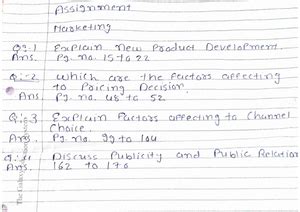 Assignment
Marketing
Q:-1 Explain New Product Development.
Ans. Pg. no. 15 to 22
Q:-2 Which are the Factors affecting
to Pricing Decision.
Ans. Pg. no. 48 to 52.
Q:-3 Explain Factors affecting to Channel
Choice.
Ans. Pg. no. 99 to 104
Q:-4 Discuss Publicity and Public Relation
Ans: 162 to 170